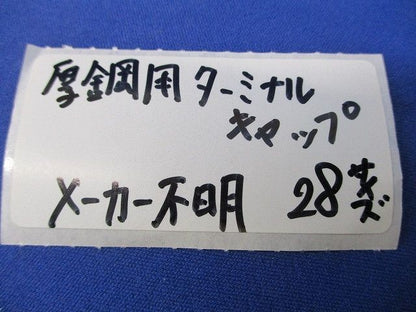 厚鋼用ターミナル
キャップ
メーカー不明 28サイズ